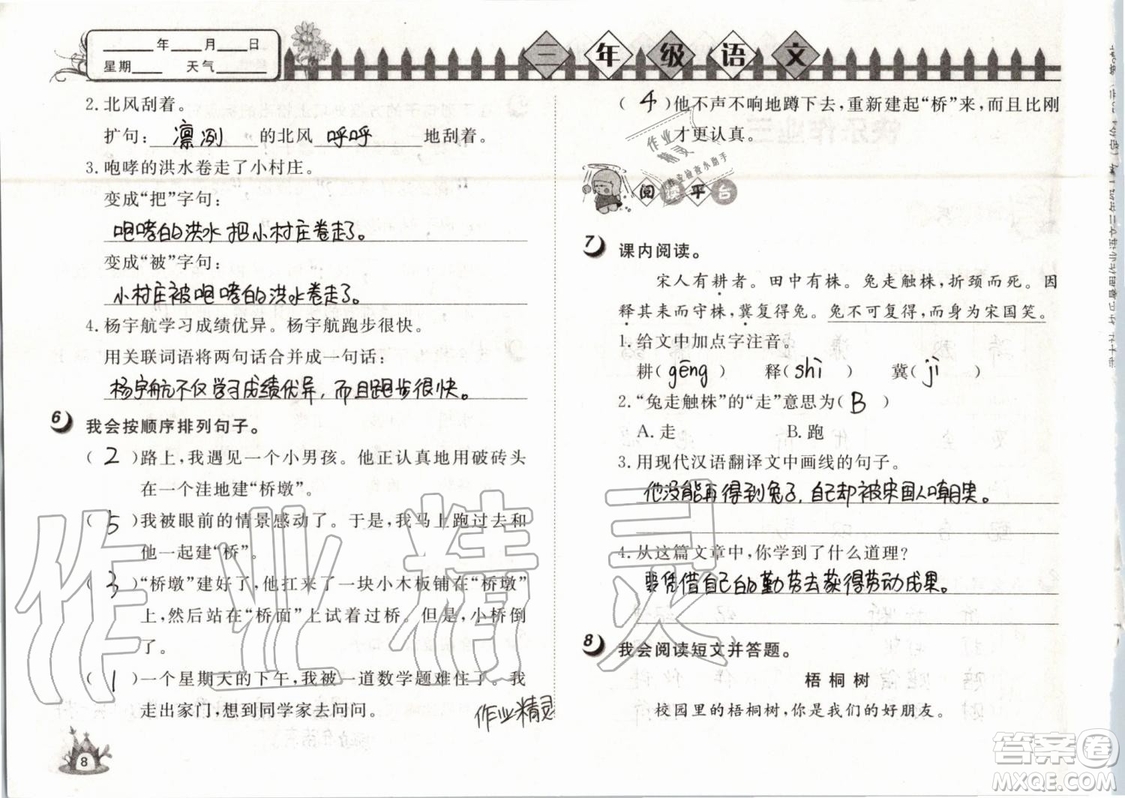 ____年__月__日
星期____ 天气______
三年级语文
2. 北风刮着。
扩句：凛冽的北风呼呼地刮着。
3. 咆哮的洪水卷走了小村庄。
变成“把”字句：
咆哮的洪水把小村庄卷走了。
变成“被”字句：
小村庄被咆哮的洪水卷走了。
4. 杨宇航学习成绩优异。杨宇航跑步很快。
用关联词语将两句话合并成一句话：
杨宇航不仅学习成绩优异，而且跑步很快。
6 我会按顺序排列句子。
（2）路上，我遇见一个小男孩。他正认真地用破砖头
在一个洼地建“桥墩”。
（5）我被眼前的情景感动了。于是，我马上跑过去和
他一起建“桥”。
（3）“桥墩”建好了，他扛来了一块小木板铺在“桥墩”
上，然后站在“桥面”上试着过桥。但是，小桥倒
了。
（1）一个星期天的下午，我被一道数学题难住了。我
走出家门，想到同学家去问问。
作业精灵
8
（4）他不声不响地蹲下去，重新建起“桥”来，而且比刚
才更认真。
阅读平台
7 课内阅读。
宋人有耕者。田中有株。兔走触株，折颈而死。因
释其耒而守株，冀复得兔。兔不可复得，而身为宋国笑。
1. 给文中加点字注音。
耕（gēng） 释（shì） 冀（jì）
2. “兔走触株”的“走”意思为（B）
A. 走 B. 跑
3. 用现代汉语翻译文中画线的句子。
他没能再得到兔子，自己却被宋国人嘲笑。
4. 从这篇文章中，你学到了什么道理？
要凭借自己的勤劳去获得劳动成果。
8 我会阅读短文并答题。
梧桐树
校园里的梧桐树，你是我们的好朋友。
作业精灵
答案圈
MXQE.COM